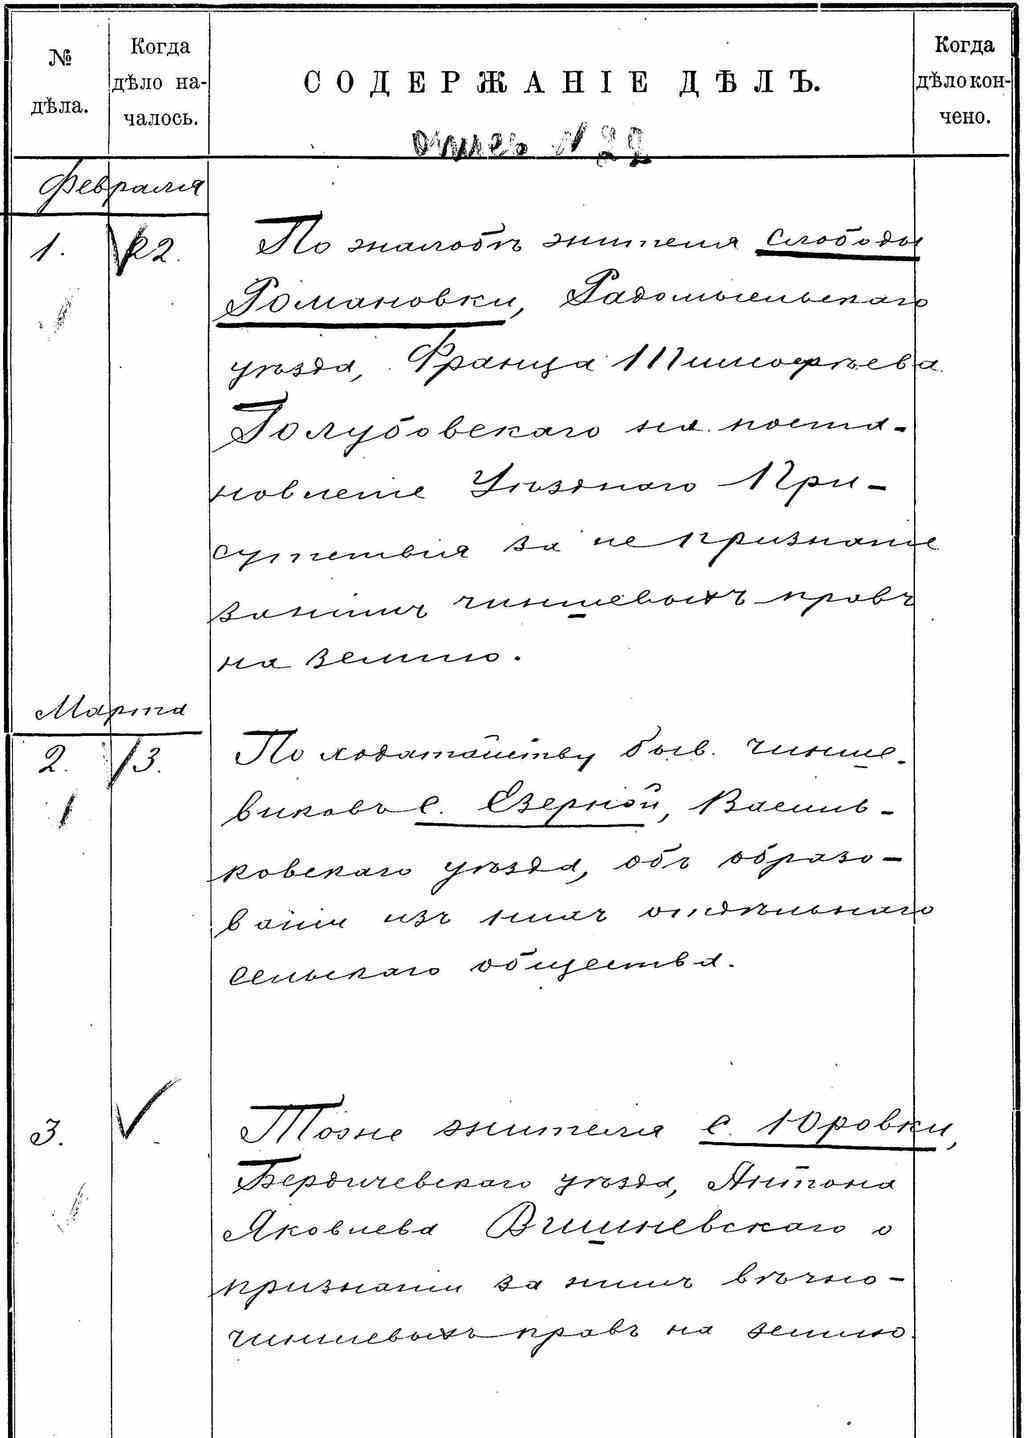 № дѣла.
Когда дѣло на-чалось.
СОДЕРЖАНІЕ ДѢЛЪ.
Когда дѣло кон-чено.
опись N 22
Февраля
1. 22. По жалобѣ жителя слободы
Романовки, Радомысльскаго
уѣзда, Франца Тимофѣева
Голубовскаго на поста-
новленіе Уѣзднаго При-
сутствія за не признаніе
за нимъ чиншевыхъ правъ
на землю.
Марта
2. 3. По ходатайству быв. чинше-
виковъ с. Езерной, Василь-
ковскаго уѣзда, объ образо-
ваніи изъ нихъ отдѣльнаго
сельскаго общества.
3. Тоже жителя с. Юровки,
Бердичевскаго уѣзда, Антона
Яковлева Вишневскаго о
признаніи за нимъ вѣчно-
чиншевыхъ правъ на землю.